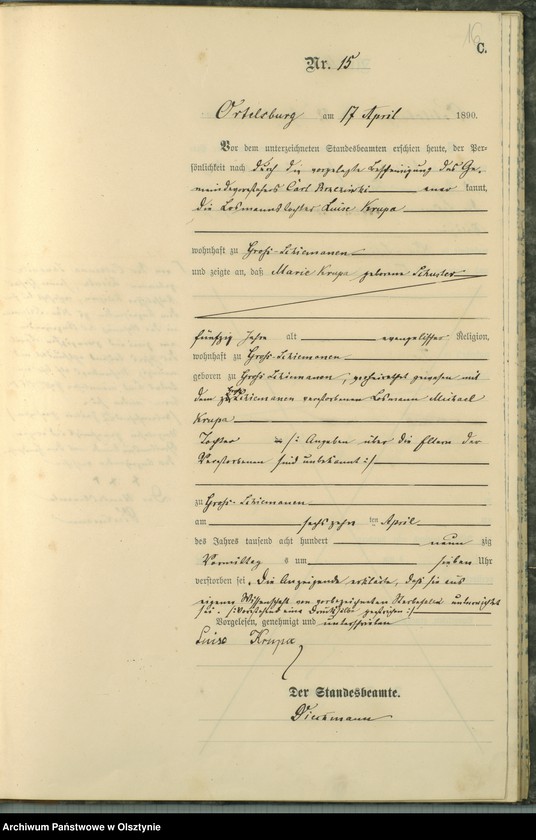 16
C.
Nr. 15
Ortelsburg am 17 April 1890.
Vor dem unterzeichneten Standesbeamten erschien heute, der Per-
sönlichkeit nach durch die vorgelegte Bescheinigung des Ge-
meindevorstehers Carl Brzezinski aner kannt,
die Losmannstochter Luise Krupa
wohnhaft zu Groß-
und zeigte an, daß Marie Krupa geborene Schuster
fünfzig Jahre alt evangelischer Religion,
wohnhaft zu Groß-
geboren zu Groß- , verheirathet gewesen mit
dem zu Groß verstorbenen Losmann Michael
Krupa
Tochter /: Angaben über die Eltern der
Verstorbenen sind unbekannt :/
zu Groß-
am sechszehn ten April
des Jahres tausend acht hundert neun zig
Vormittag s um sieben Uhr
verstorben sei. Die Anzeigende erklärte, daß sie aus
eigener Wissenschaft von vorbezeichneten Sterbefalle unterrichtet
sei. /: Vorstehend eine Druckzeile gestrichen :/
Vorgelesen, genehmigt und unterschrieben
Luise Krupa
Der Standesbeamte.
Archiwum Państwowe w Olsztynie